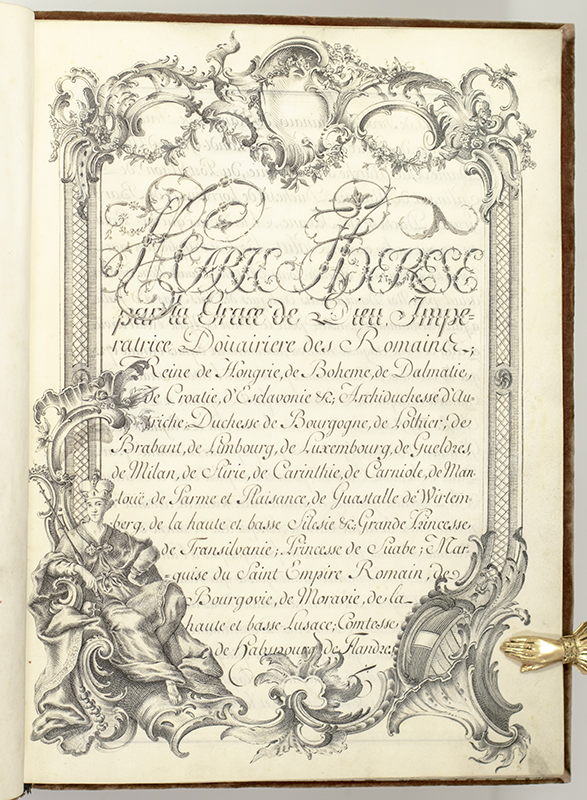 MARIE THERESE
par la Grace de Dieu, Impe-
ratrice Doüairiere des Romains;
Reine de Hongrie, de Boheme, de Dalmatie,
de Croatie, d'Esclavonie &c; Archiduchesse d'Au-
triche, Duchesse de Bourgogne, de Lothier; de
Brabant, de Limbourg, de Luxembourg, de Gueldres,
de Milan, de Stirie, de Carinthie, de Carniole, de Man-
touë, de Parme et Plaisance, de Guastalle de Wirtem-
berg, de la haute et basse Silesie &c; Grande Princesse
de Transilvanie; Princesse de Suabe; Mar-
quise du Saint Empire Romain, de
Bourgovie, de Moravie, de la
haute et basse Lusace; Comtesse
de Habsbourg, de Flandres